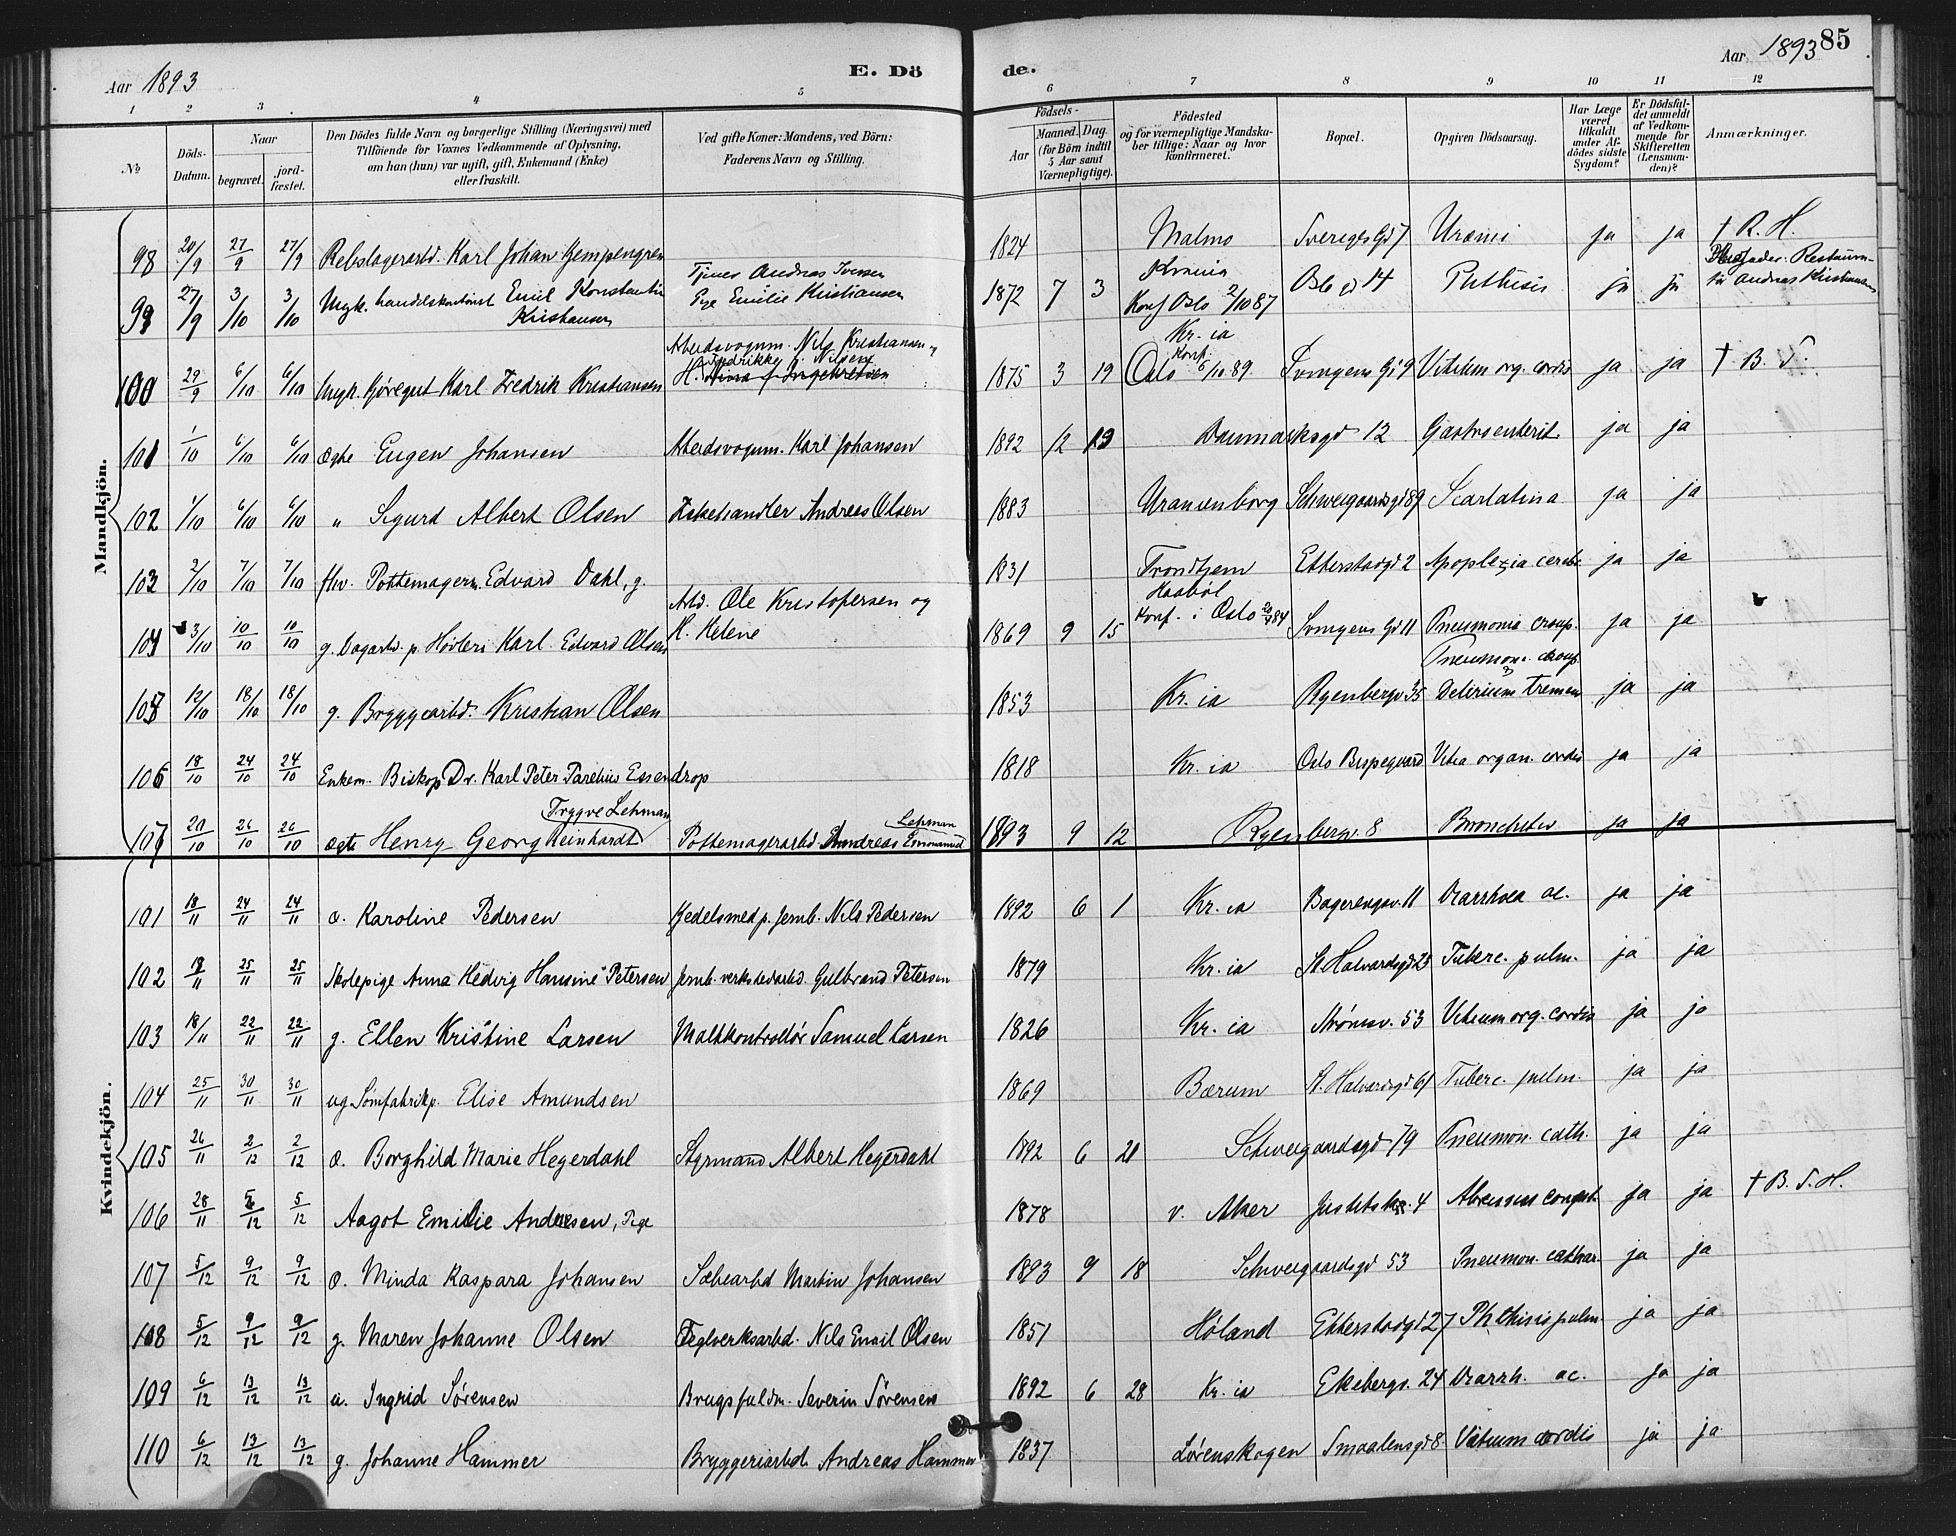 Aar 1893
E. Dö
de.
Aar 1893
85
1 2 3 4 5 6 7 8 9 10 11 12
No
Döds-Datum.
Naar
begravet.
jord-fæstet.
Den Dödes fulde Navn og borgerlige Stilling (Næringsvei) med
Tilföiende for Voxnes Vedkommende af Oplysning,
om han (hun) var ugift, gift, Enkemand (Enke)
eller fraskilt.
Ved gifte Koner: Mandens, ved Börn:
Faderens Navn og Stilling.
Födsels-
Aar
Maaned. Dag.
(for Börn indtil
5 Aar samt
Værnepligtige).
Födested
og for værnepligtige Mandska-
ber tillige: Naar og hvor
konfirmeret.
Bopæl.
Opgiven Dödsaarsag.
Har Læge
været
tilkaldt
under Af-
dödes sidste
Sygdom?
Er Dödsfal-
det anmeldt
af Vedkom-
mende for
Skifteretten
(Lensman-
den)?
Anmærkninger.
Mandkjön.
98 20/9 27/9 27/9 Rebslagerarbd. Karl Johan Gempengren 1824 Malmø Sveriges Gd 7 Uræmi ja ja † R. H.
99 27/9 3/10 3/10 Ungk. handelskontorist Emil Konstantin Kristiansen Tjener Andreas Iversen Pige Emilie Kristiansen 1872 7 3 Krania Konf Oslo 2/10 87 Oslo gd 14 Phthisis ja ja Andreas Kristiansen
100 29/9 6/10 6/10 Ungk. Gjøregut Karl Fredrik Kristiansen Arbeidsvognm. Nils Kristiansen og H. Fredrikke f. Nilsen 1875 3 19 Kr. ia Konf. Oslo 6/10 89 9 Vitium org. cordis ja ja † B. S.
101 1/10 6/10 6/10 ægte Eugen Johansen Arbeidsvognm. Karl Johansen 1892 12 13 Danmarksgd 12 Gastroenterit ja ja
102 1/10 6/10 6/10 " Sigurd Albert Olsen Fiskehandler Andreas Olsen 1883 Uranienborg Schweigaardsgd 89 Scarlatina ja ja
103 2/10 7/10 7/10 fhv. Pottemagerm. Edvard Dahl, g. 1831 Trondhjem Etterstadgd 2 Apoplexia cerebr. ja ja
104 3/10 10/10 10/10 g. Dagarbd. p. Høvleri Karl Edvard Olsen Arbd. Ole Kristofersen og H. Helene 1869 9 15 Haabøl Konf. i Oslo 84 11 Pneumonia croup. ja ja
105 12/10 18/10 18/10 g. Bryggearbd. Kristian Olsen 1853 Kr. ia Ryenbergv 35 Pneumon. croup. Delirium tremen ja ja
106 18/10 24/10 24/10 Enkem. Biskop Dr. Karl Peter Parelius Essendrop 1818 Kr. ia Oslo Bispegaard Vitia organ. cordis ja ja
107 20/10 26/10 26/10 ægte Henry Georg Reinhardt Trygve Lehman Pottemagerarbd. Andreas Emmanuel Lehman 1893 9 12 Ryenbergv. 8 Bronchitis ja ja
Kvindekjön.
101 18/11 24/11 24/11 æ. Karoline Pedersen Gjedelsmed p. Jernb. Nils Pedersen 1892 6 1 Kr. ia 11 Diarrhoea ac. ja ja
102 18/11 25/11 25/11 Skolepige Anna Hedvig Hansine Petersen Jernb. verkstedarbd. Gulbrand Petersen 1879 Kr. ia St. Halvardsgd 25 Tuberc. pulm. ja ja
103 18/11 22/11 22/11 g. Ellen Kristine Larsen Maltkontrollør Samuel Larsen 1826 Kr. ia Strømsv. 53 Vitium org. cordis ja ja
104 25/11 30/11 30/11 ug Sømfabrikp. Elise Amundsen 1869 Bærum St. Halvardsgd 61 Tuberc. pulm. ja ja
105 26/11 2/12 2/12 æ. Borghild Marie Hegerdahl Styrmand Albert Hegerdahl 1892 6 21 Schweigaardsgd 79 Pneumon. cath. ja ja
106 28/11 5/12 5/12 Aagot Emilie Andersen, Pige 1878 v. Aker 4 ja ja † B. S. H.
107 5/12 9/12 9/12 æ. Minda Kaspara Johansen Sæbearbd Martin Johansen 1893 9 18 Schweigaardsgd 53 Pneumon. cathar. ja ja
108 5/12 9/12 9/12 g. Maren Johanne Olsen Teglverksarbd. Nils Emil Olsen 1851 Høland Etterstadgd 27 Phthisis pulm ja ja
109 6/12 13/12 13/12 æ. Ingrid Sørensen Brugsfuldm. Severin Sørensen 1892 6 28 Kr. ia Ekebergv. 24 Diarrh. ac. ja ja
110 6/12 13/12 13/12 g. Johanne Hammer Bryggeriarbd. Andreas Hammer 1837 Lørenskogen Smaalensgd 8 Vitium cordis ja ja